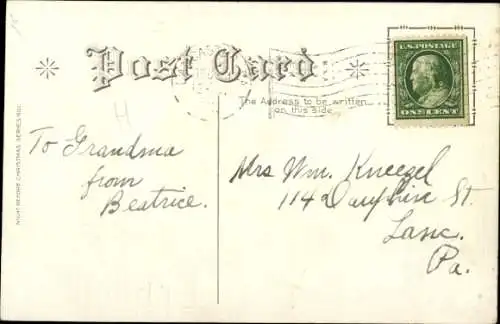 Post Card
U.S. POSTAGE
ONE CENT
The Address to be written
on this side.
H
To Grandma
from
Beatrice.
Mrs Wm. Kneezel
114 Dauphin St.
Lanc.
Pa.